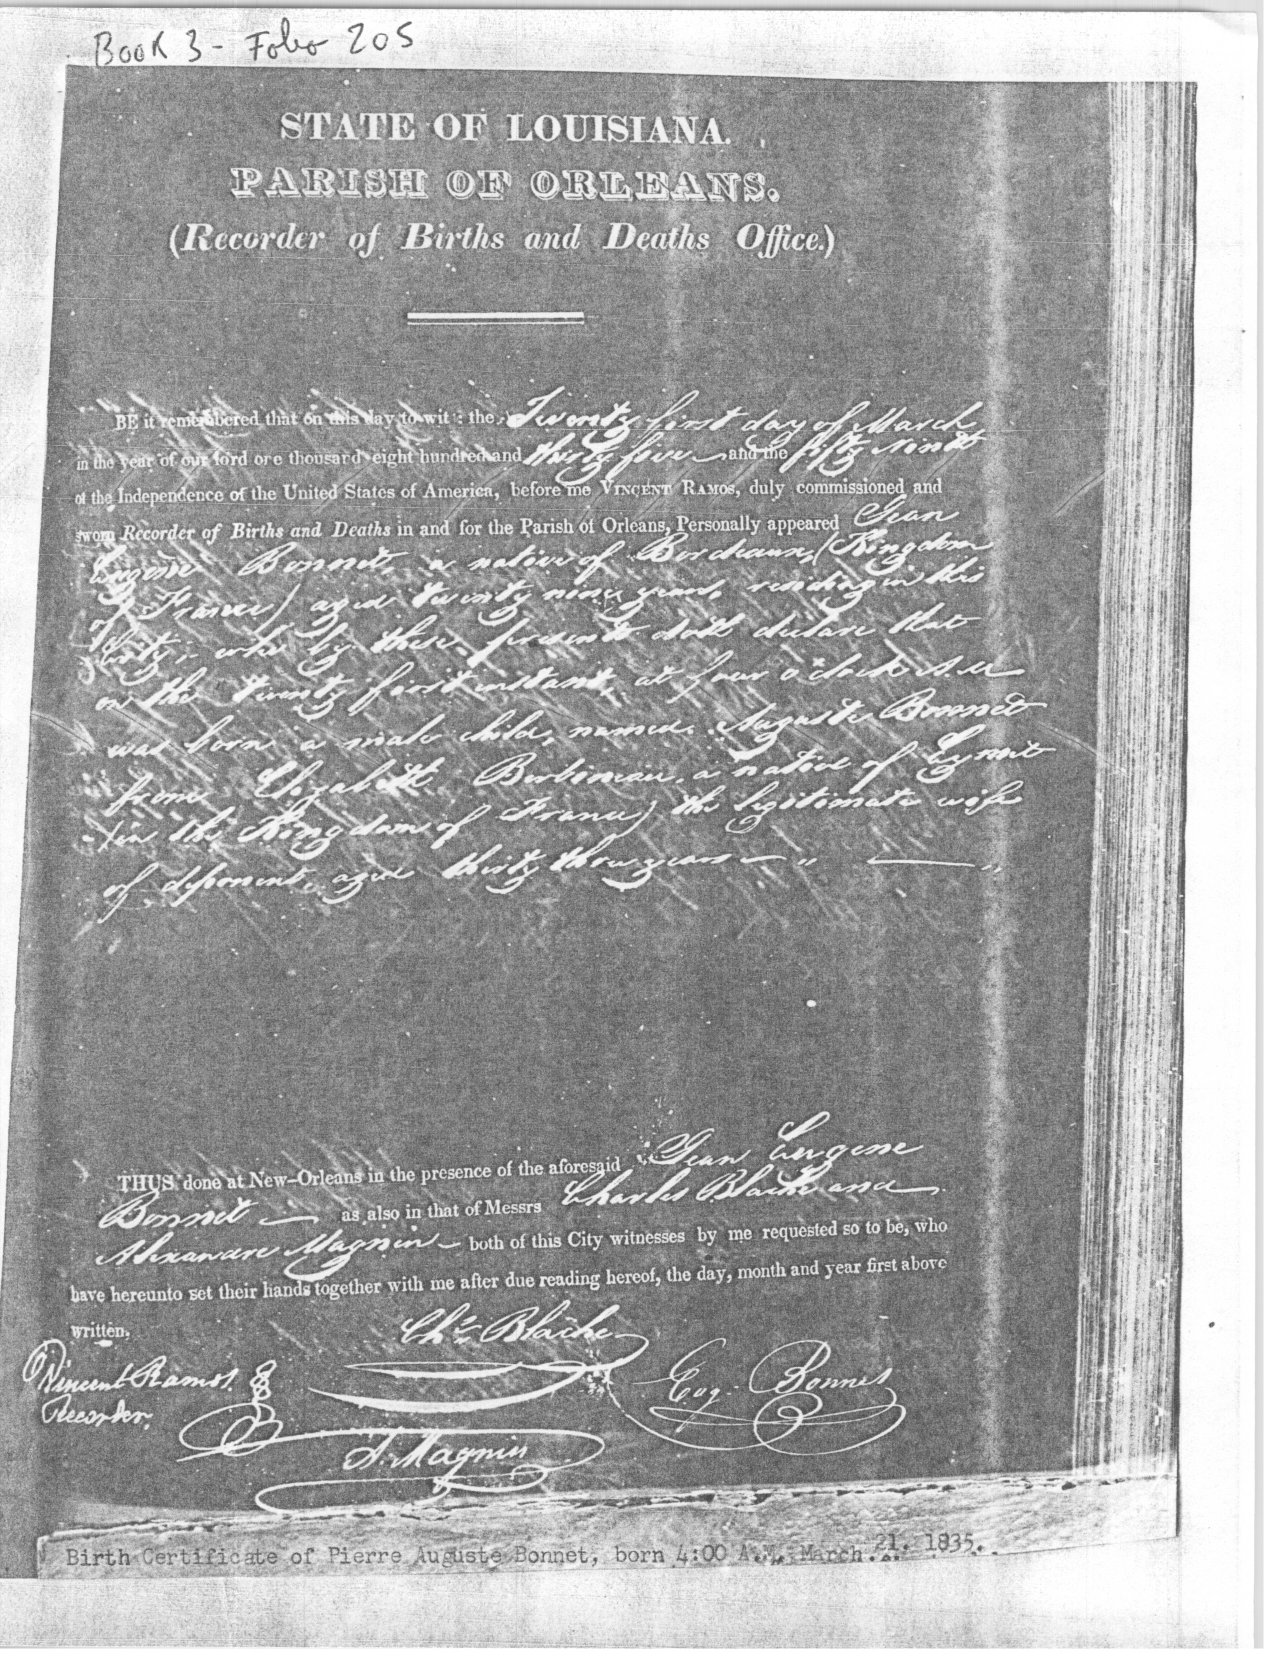 Book 3 - Folio 205
STATE OF LOUISIANA.
PARISH OF ORLEANS.
(Recorder of Births and Deaths Office.)
BE it remembered that on this day to wit : the Twenty first day of March
in the year of our lord one thousand eight hundred and thirty five and the fifty ninth
of the Independence of the United States of America, before me VINCENT RAMOS, duly commissioned and
sworn Recorder of Births and Deaths in and for the Parish of Orleans, Personally appeared Jean
Eugene Bonnet a native of Bordeaux, (Kingdom
of France) aged twenty nine years, residing in this
City, who by these presents doth declare that
on the twenty first instant, at four o'clock A.M
was born a male child, named Auguste Bonnet
from Elizabeth a native of
(in the Kingdom of France) the legitimate wife
of deponent, aged thirty three years — " — "
THUS done at New-Orleans in the presence of the aforesaid Jean Eugene
Bonnet — as also in that of Messrs Charles Blache and
Alexandre Magnin — both of this City witnesses by me requested so to be, who
have hereunto set their hands together with me after due reading hereof, the day, month and year first above
written.
Chs Blache
Vincent Ramos
Recorder.
Eug. Bonnet
A. Magnin
Birth Certificate of Pierre Auguste Bonnet, born 4:00 A.M. March 21, 1835.